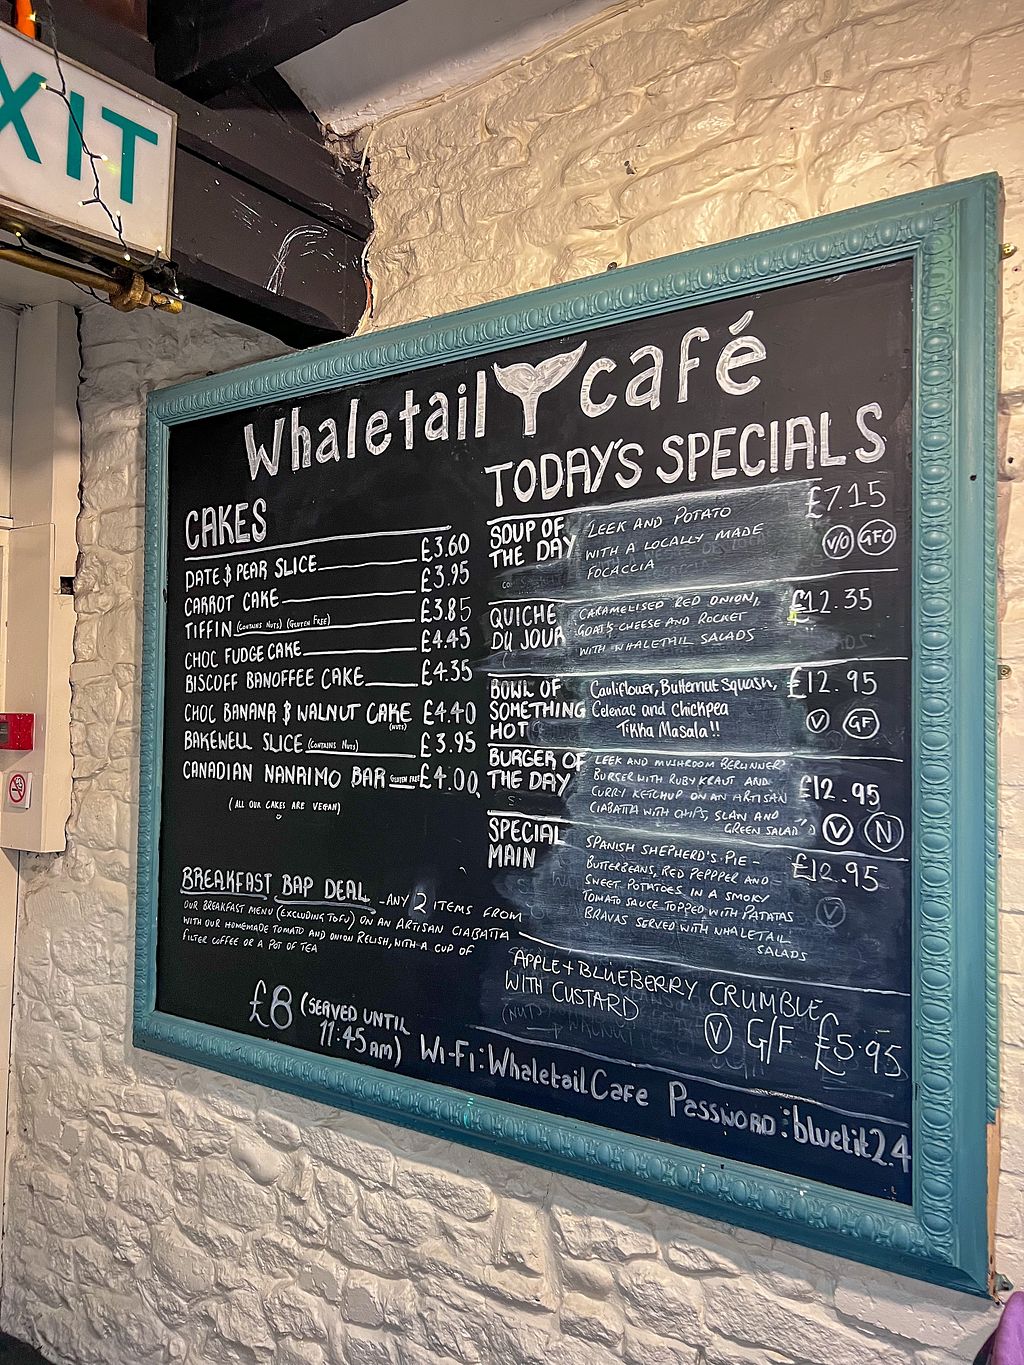 XIT
Whaletail café
CAKES
DATE & PEAR SLICE £3.60
CARROT CAKE £3.95
TIFFIN (CONTAINS NUTS) (GLUTEN FREE) £3.85
CHOC FUDGE CAKE £4.45
BISCOFF BANOFFEE CAKE £4.35
CHOC BANANA & WALNUT CAKE £4.40
(NUTS)
BAKEWELL SLICE (CONTAINS NUTS) £3.95
CANADIAN NANAIMO BAR GLUTEN FREE £4.00
(ALL OUR CAKES ARE VEGAN)
BREAKFAST BAP DEAL - ANY 2 ITEMS FROM
OUR BREAKFAST MENU (EXCLUDING TOFU) ON AN ARTISAN CIABATTA
WITH OUR HOMEMADE TOMATO AND ONION RELISH, WITH A CUP OF
FILTER COFFEE OR A POT OF TEA
£8 (SERVED UNTIL
11:45 AM)
TODAY'S SPECIALS
SOUP OF
THE DAY
LEEK AND POTATO
WITH A LOCALLY MADE
FOCACCIA
£7.15
V/O GFO
QUICHE
DU JOUR
CARAMELISED RED ONION,
GOAT'S CHEESE AND ROCKET
WITH WHALETAIL SALADS
£12.35
BOWL OF
SOMETHING
HOT
Cauliflower, Butternut Squash,
Celeriac and Chickpea
Tikka Masala!!
£12.95
V GF
BURGER OF
THE DAY
LEEK AND MUSHROOM BERLINNER
BURGER WITH RUBY KRAUT AND
CURRY KETCHUP ON AN ARTISAN
CIABATTA WITH CHIPS, SLAW AND
GREEN SALAD
£12.95
V N
SPECIAL
MAIN
SPANISH SHEPHERD'S PIE -
BUTTERBEANS, RED PEPPPER AND
SWEET POTATOES IN A SMOKY
TOMATO SAUCE TOPPED WITH PATATAS
BRAVAS SERVED WITH WHALETAIL
SALADS
£12.95
V
APPLE + BLUEBERRY CRUMBLE
WITH CUSTARD
(NUTS)
V G/F £5.95
Wi-Fi: WhaletailCafe Password: bluetit24